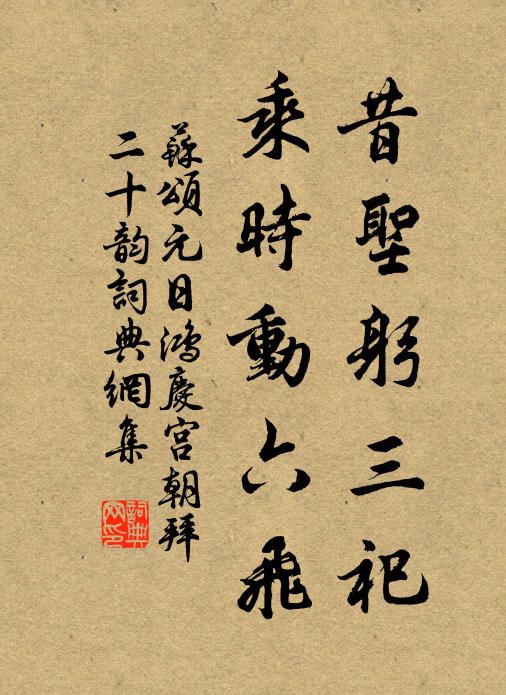 昔聖躬三祀
乘時動六飛
蘇頌元日鴻慶宮朝拜
二十韵詞典網集
詞典網印